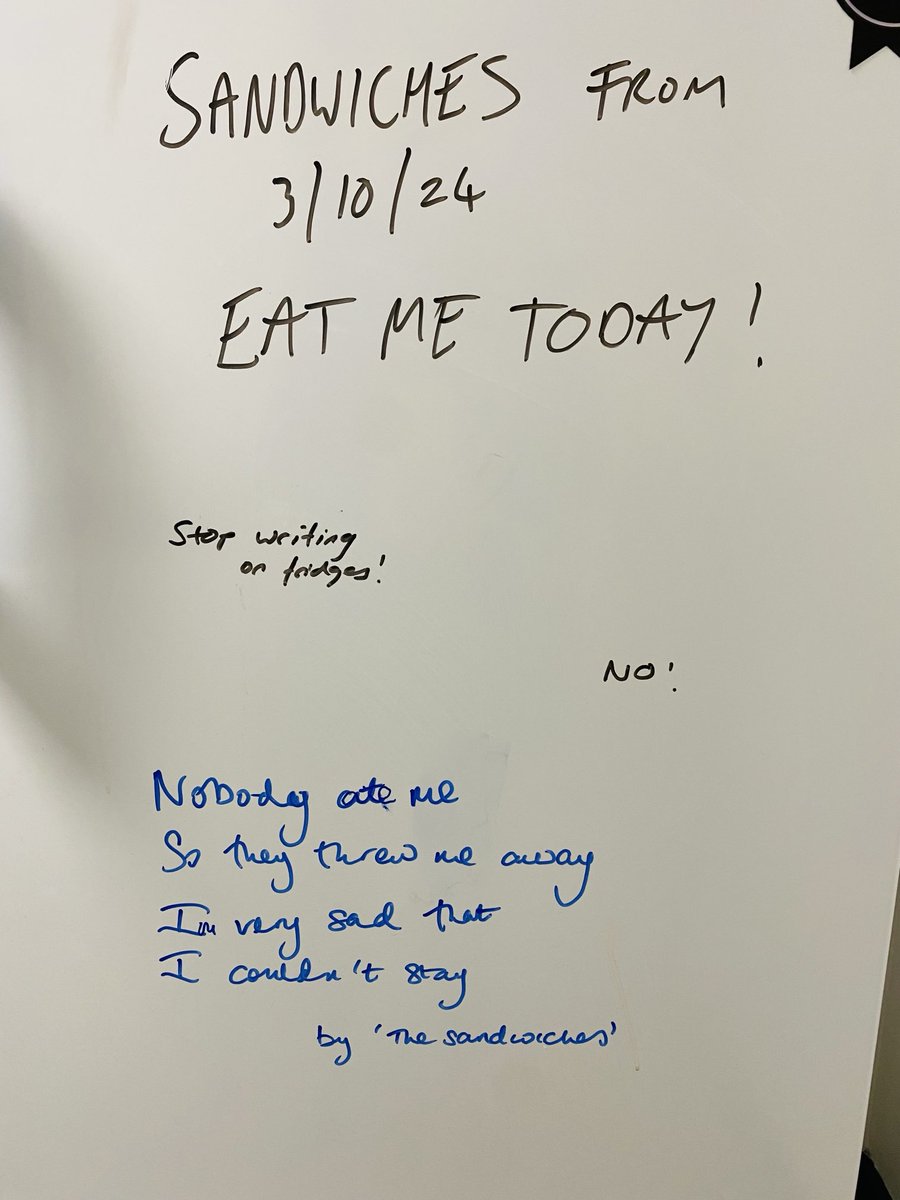 SANDWICHES FROM
3/10/24
EAT ME TODAY!
Stop writing
on fridges!
NO!
Nobody ate me
So they threw me away
I'm very sad that
I couldn't stay
by 'The sandwiches'